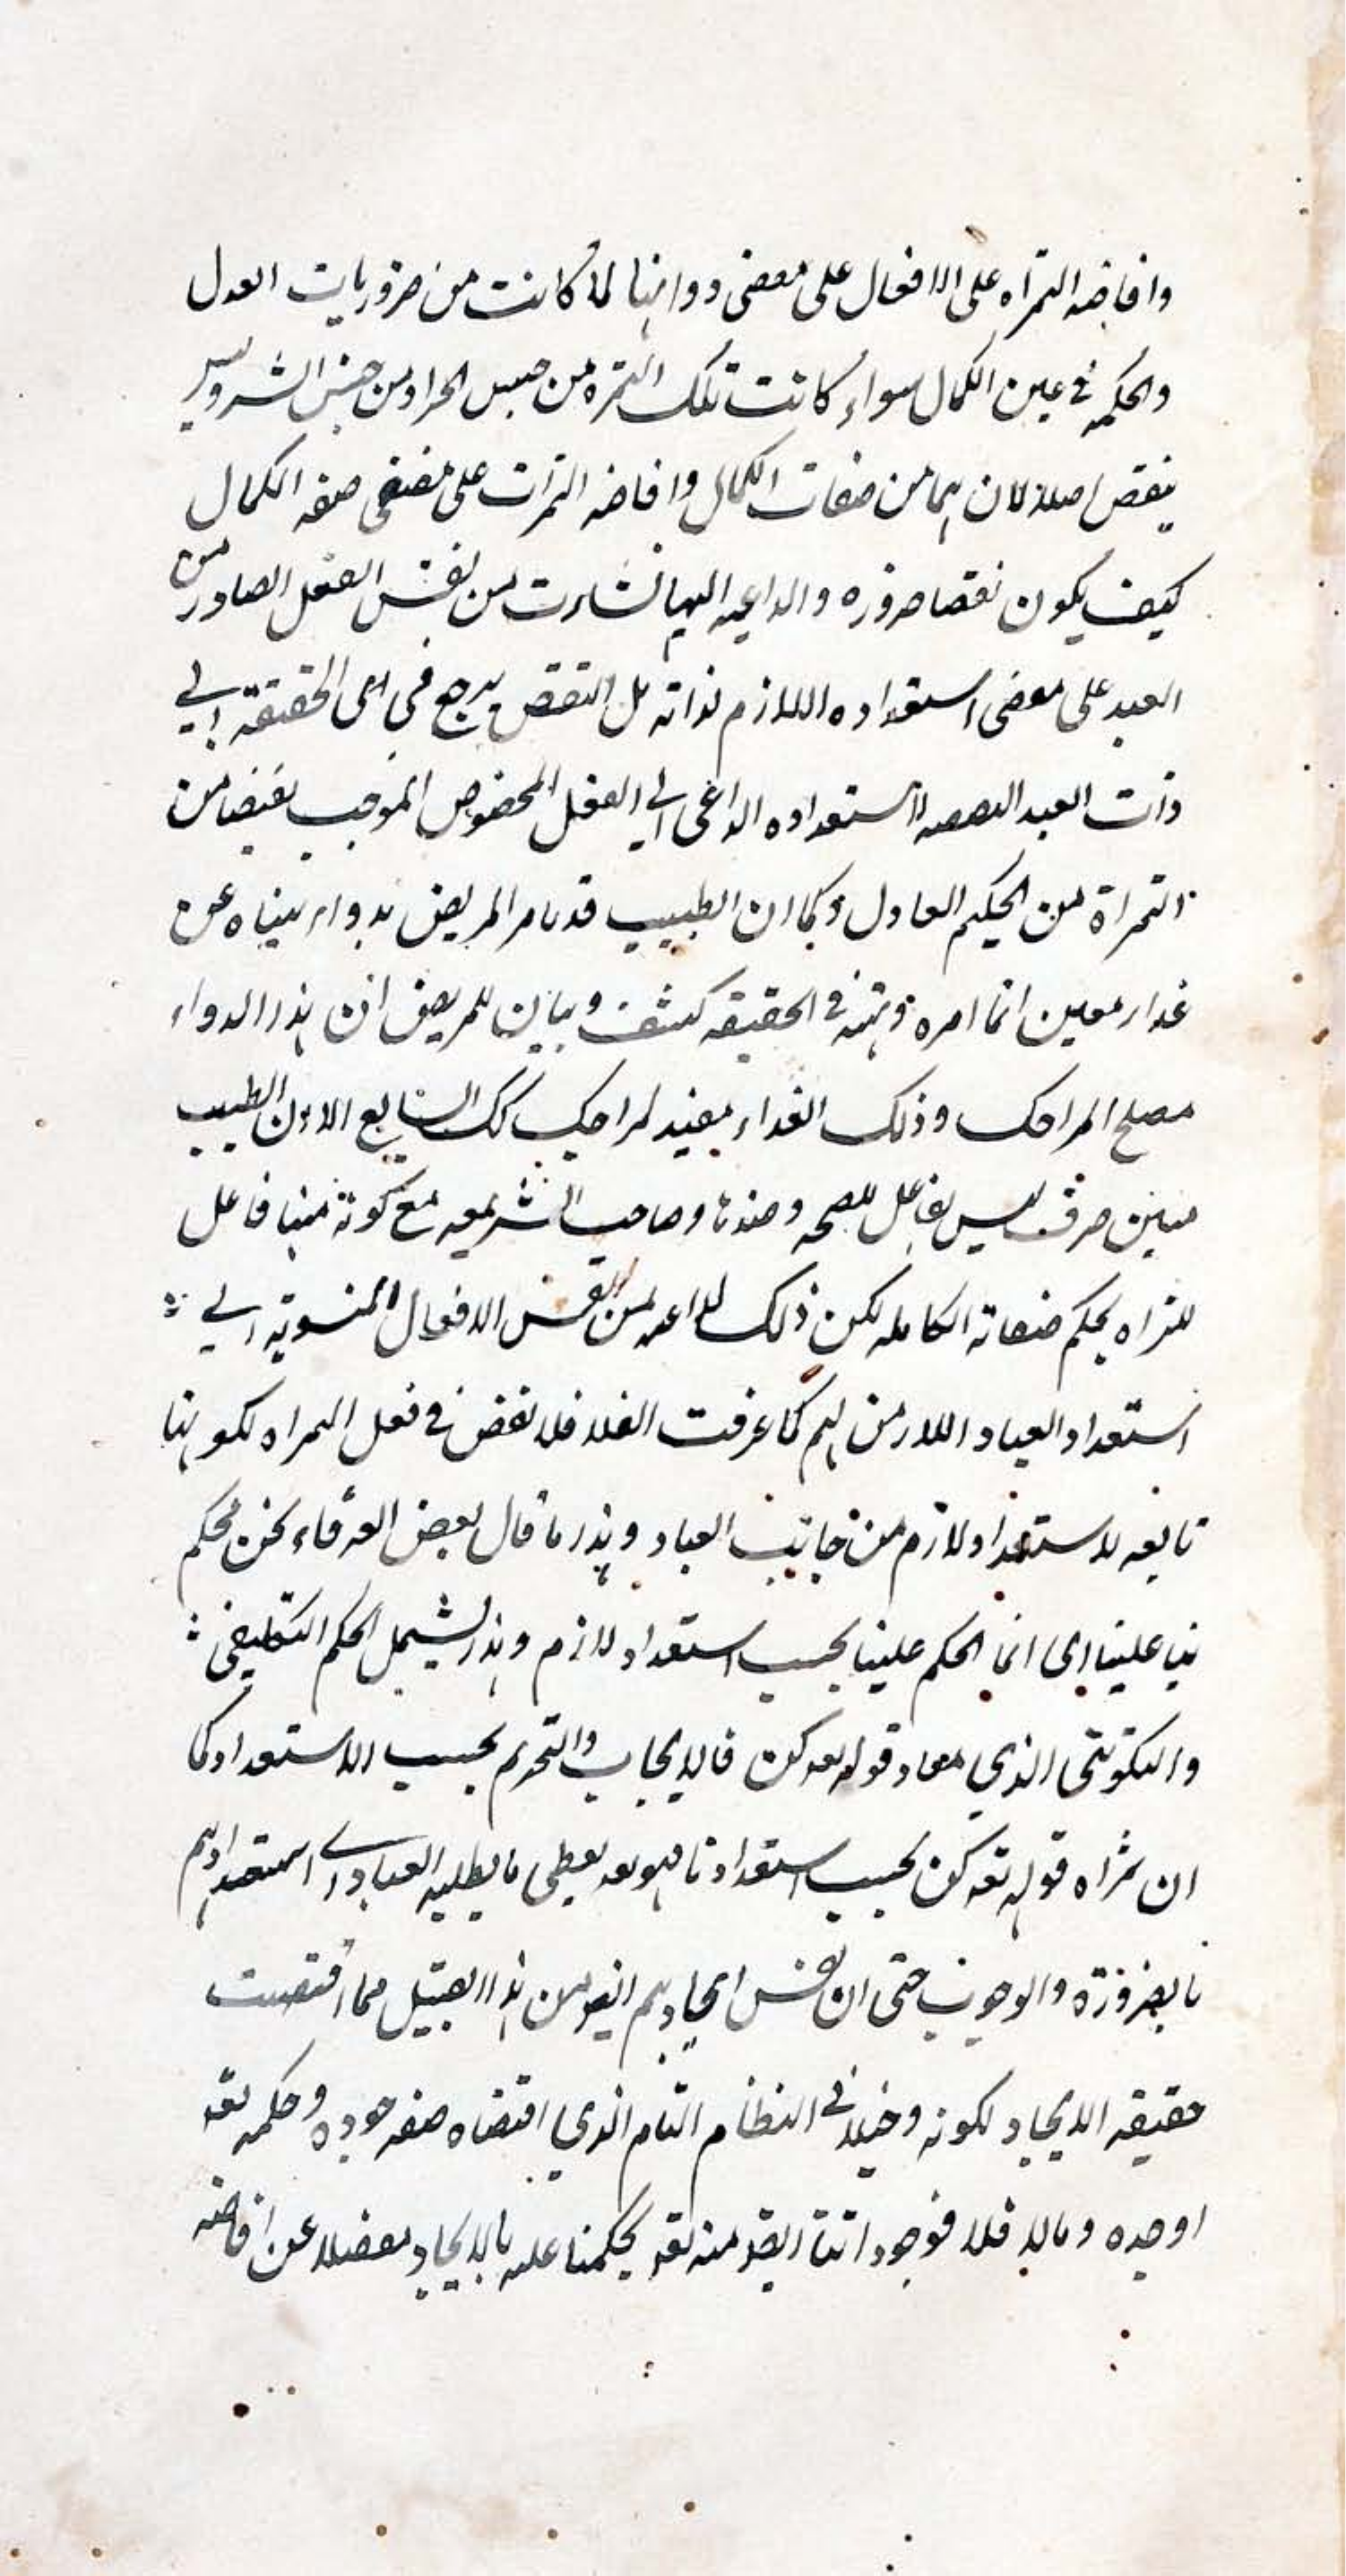 وافاضه الثمراه على الافعال على مقضى دواينا لما كانت من ضروريات العدل
والحكمه في عين الكمال سواء كانت تلك الثمره من جنس الشر وليس
بنقص اصلا لان هما من صفات الكمال وافاضه الثمرات على مقتضى صفه الكمال
كيف يكون نقصا ضروره والداعيه اليها نشاءت من نفس الفعل الصادر من
العبد على مقضى استعداده اللازم لذاته بل النقص يرجع في الحقيقة الي
ذات العبد استعداده الداعى الي الفعل المخصوص الموجب
الثمراة من الحكيم العادل وكما ان الطبيب قد يامر المريض بدواء ينهاه عن
غداء معين انما امره ونهيه في الحقيقه كشف وبيان للمريض ان هذا الدواء
مصلح المراجك وذلك الغداء مفسد لمراجك كك الشايع الا ان الطبيب
مبين صرف ليس بفاعل للصحه وضدها وصاحب الشريعه مع كونه مبينا فاعل
للثراه بحكم صفاته الكامله لكن ذلك لداعيه من نفس الافعال المنسوبة الي
استعداد العباد اللازمن لهم كما عرفت انفا فلا نقص في فعل الثمراه لكونها
تابعه لاستعداد لازم من جانب العباد وهذا ما قال بعض العرفاء نحن نحكم
بنا علينا اى انما الحكم علينا بحسب استعداد لازم وهذا يشمل الحكم التكليفى
والتكوينى الذي مفاد قوله تعه كن فالايجاب والتحريم بحسب الاستعداد كما
ان ثمراه قوله تعه كن بحسب استعداد ما فهو تعه يعطى ما يطلبه العباد اي استعدادهم
بالضرورة والوجوب حتى ان نفس ايجادهم ايضا من هذا القبيل مما اقتضت
حقيقه الايجاد لكونه دخيلا في النظام التام الذي اقتضاه صفه جوده وحكمه تعه
اوجده ومالا فلا فوجوداتنا ايضا منه تعه بحكمنا عليه بالايجاد مفضلا عن افاضه